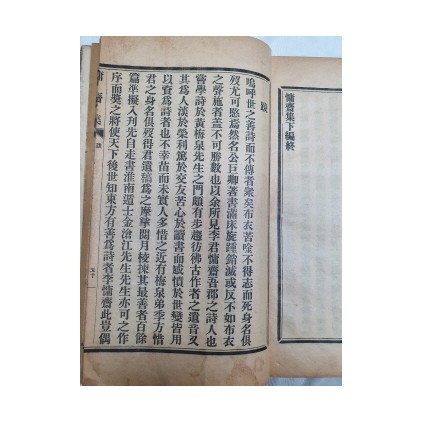 慵齋集下編終
跋
嗚呼世之善詩而不傳者衆矣布衣苦唫不得志而死身名俱
歿尤可愍焉然名公巨卿著書滿床旋踵銷滅或反不如布衣
之聲施者蓋不可勝數也以余所見李君慵齋吾郡之詩人也
嘗學詩於黃梅泉先生之門頗有步趨彷彿古作者之遺音又
其爲人淡於榮利篤於交友苦心於讀書而感憤於世變皆用
以資爲詩者也不幸苗而未實人多惜之近有梅泉弟季方惜
君之身名俱歿得君遺稿爲之摩挲閱月棱揀其最善者百餘
篇準擬入刋先自走書淮南遁士金滄江先生先生亦可之作
序而獎之將使天下後世知東方有善爲詩者李慵齋此豈偶
慵齋集
跋
五十